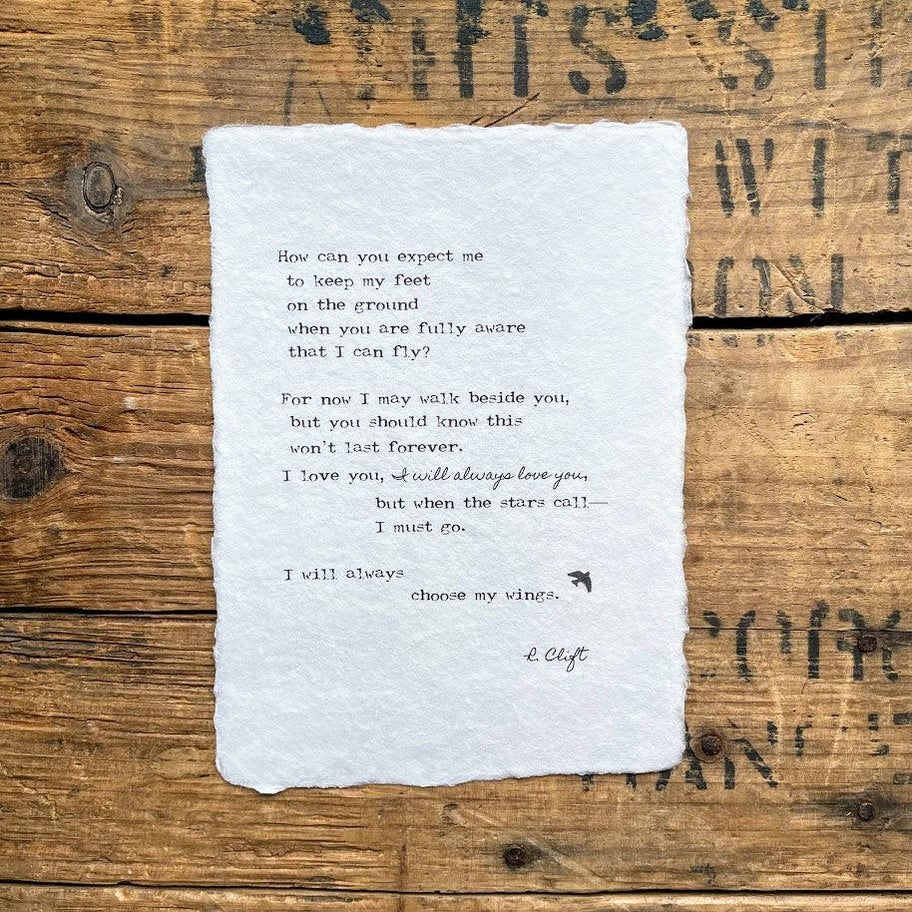 How can you expect me
to keep my feet
on the ground
when you are fully aware
that I can fly?
For now I may walk beside you,
but you should know this
won't last forever.
I love you, I will always love you,
but when the stars call—
I must go.
I will always
choose my wings.
R. Clift